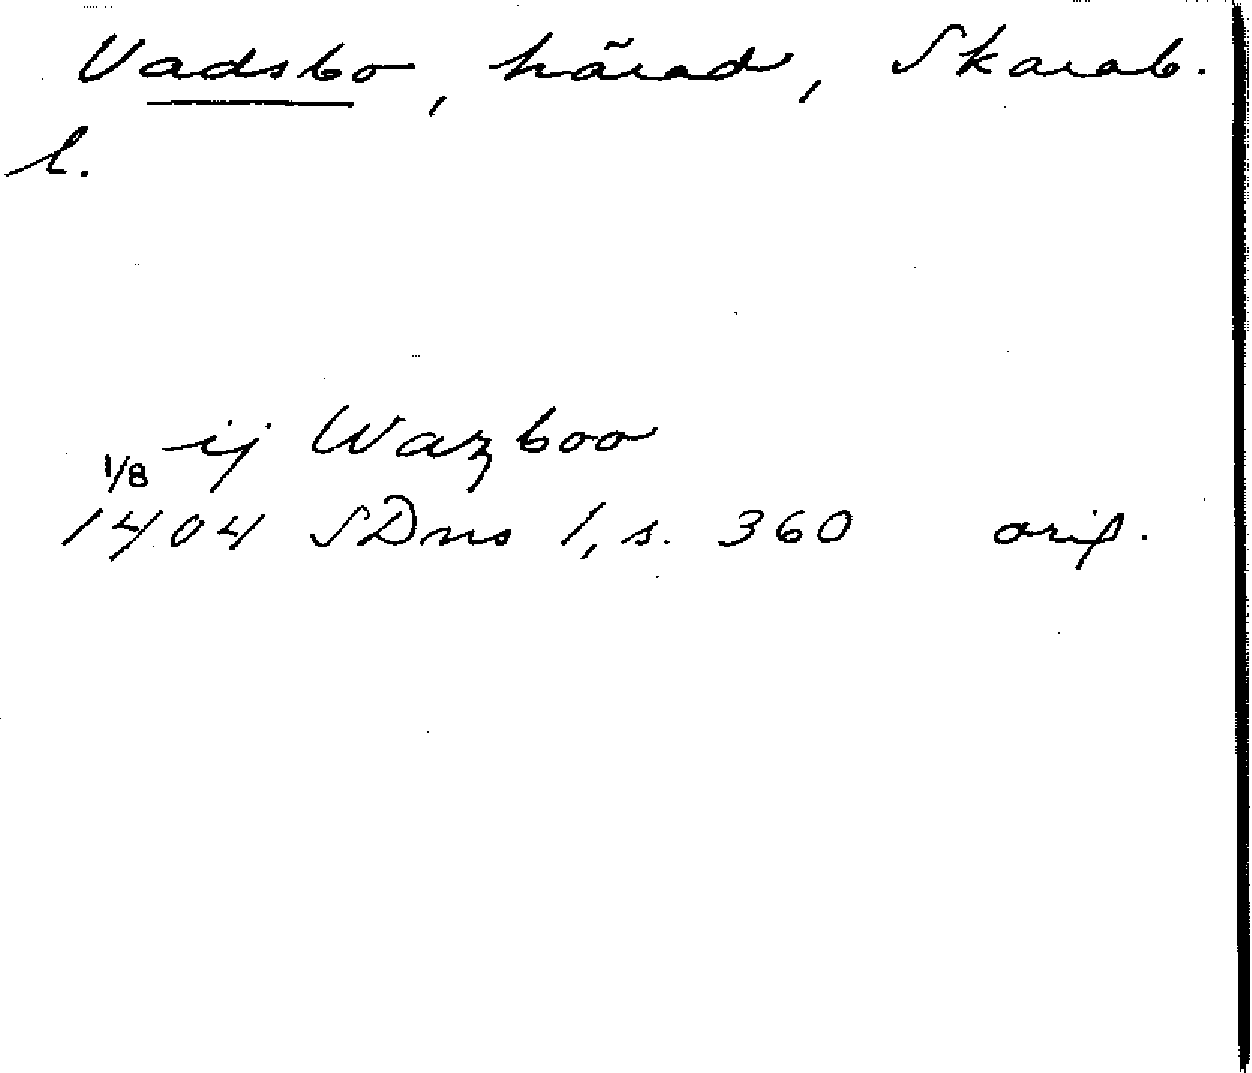 Vadsbo, härad, Skarab.
l.
ij Wazboo
1/8
1404 SDns 1, s. 360 orig.